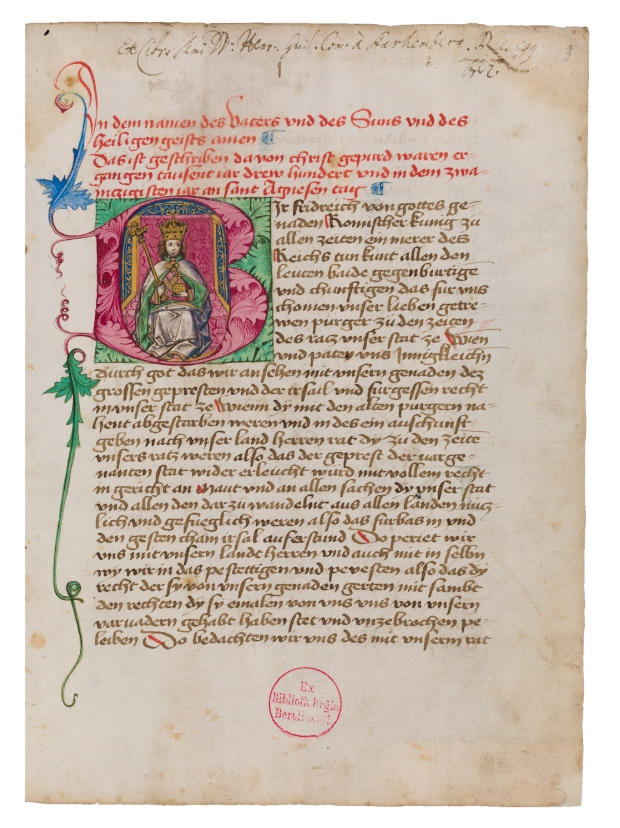 Ex libris
1
In dem namen des Vaters vnd des Suns vnd des
Heiligen geists amen
Das ist geschriben da von christ gepurd waren er-
gangen tausent iar drew hundert vnd in dem zwa-
inczigisten iar an sant Agnesen tag
Wir fridreich von gottes ge-
naden Romischer kunig zu
allen zeiten ein merer dets
Reichs tun kunt allen den
leuten baide gegenburtige
vnd chunftigen das fur vns
chomen vnser lieben getre-
wen purger zu den zeiten
des ratz vnser stat ze Wien
vnd paten vns Innigkleichn
durch got das wir an sehen mit vnsern genaden dez
grossen gepresten vnd der irsail vnd furgessen recht
in vnser stat ze Wienn dy mit den alten purgern na-
hent abgestarben weren vnd in des ein auschunft
geben nach vnser land herren rat dy zu den zeite
vnsers ratz weren also das der geprest der varge-
nanten stat wider erleucht wurd mit vollem recht
in gericht an Maut vnd an allen sachen dy vnser stat
vnd allen den dar zu wandelnt aus allen landen nucz-
lich vnd gefueglich weren also das furbas in vnd
den gesten chain irsal auferstund Do periet wir
vns mit vnsern landt herren vnd auch mit in selbn
wy wir in das pestettigen vnd pevesten also das dy
recht der sy von vnsern genaden gerten mit sambt
den rechten dy sy emalen von vns vnd von vnsern
varvadern gehabt haben stet vnd vnzebrochen pe-
leiben Do bedachten wir vns des mit vnserm rat
Ex
Biblioth. Regia
Berolinensi.